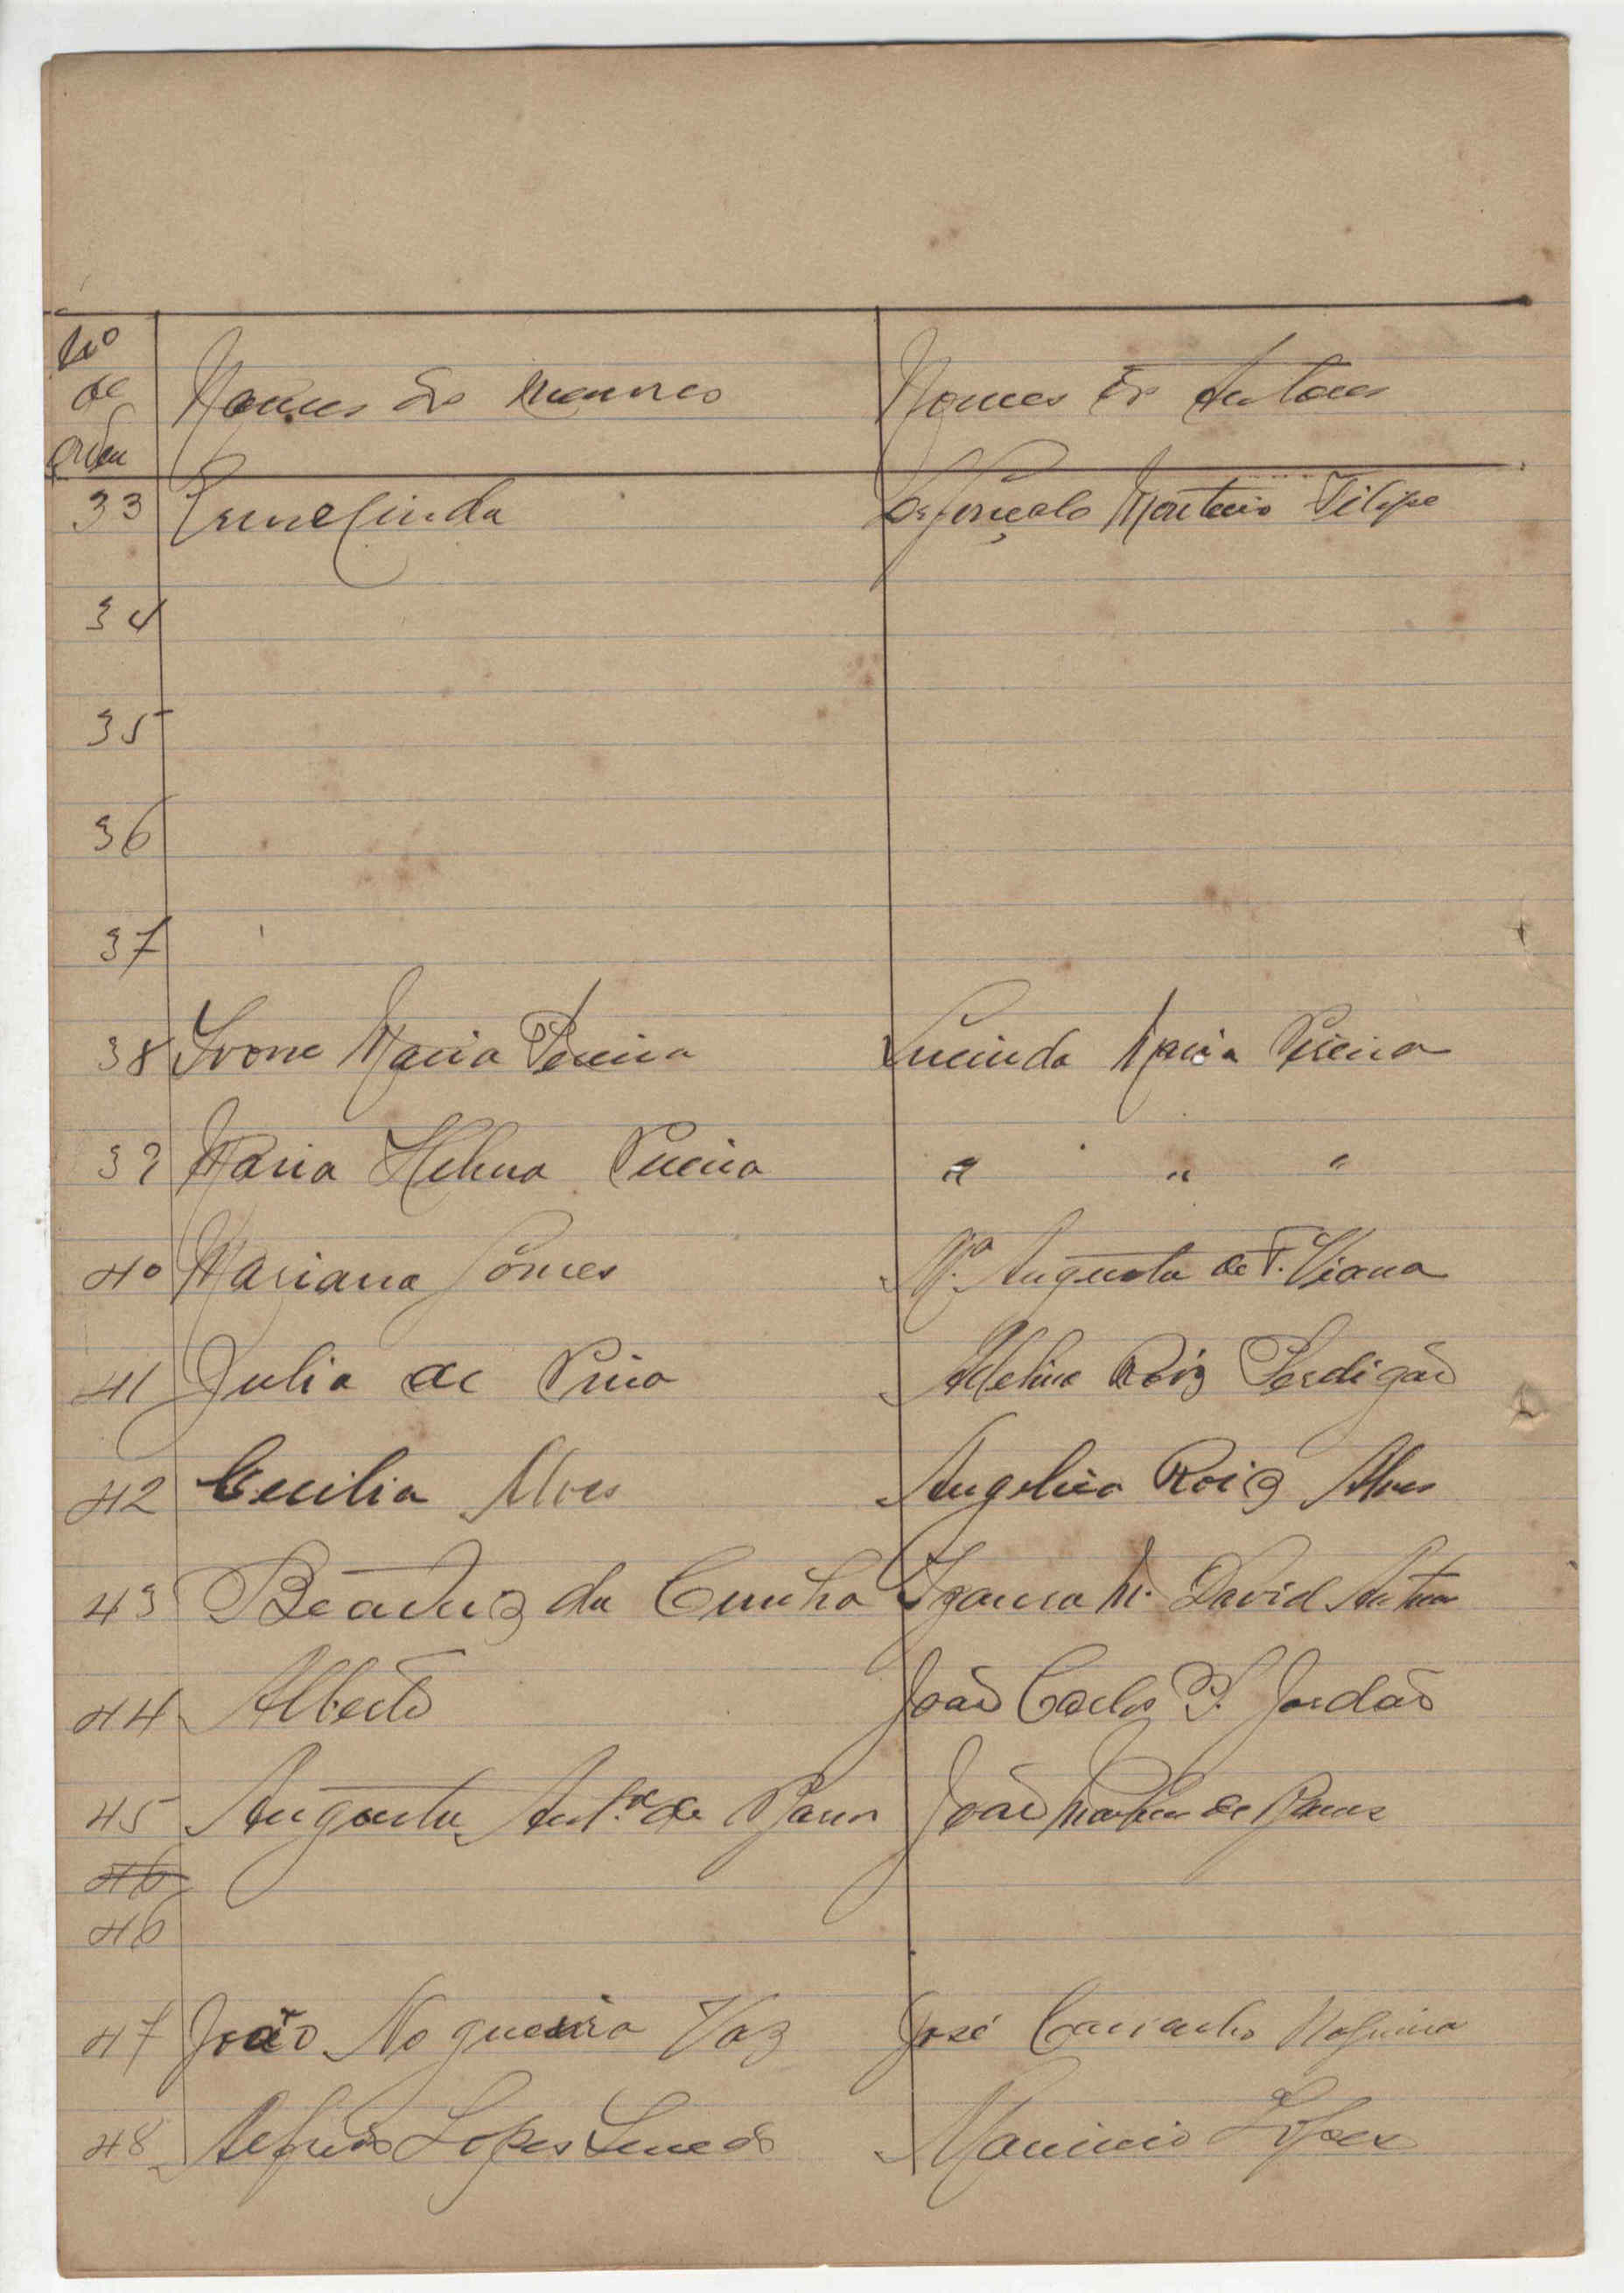 Nº
de
ordem
Nomes dos menores Nomes dos tutores
33 Ermelinda Dr Gonçalo Monteiro Filipe
34
35
36
37
38 Ivone Maria Pereira Lucinda Maria Pereira
39 Maria Helena Pereira " " "
40 Mariana Gomes Mª Augusta de F. Viana
41 Julia de Pina Adelina Roiz Perdigão
42 Cecilia Alves Angelica Roiz Alves
43 Beatriz da Cunha Izaura M. David Antunes
44 Alberto João Carlos P. Jordão
45 Augusta Antª de Barros João Martins de Barros
46
46
47 João Nogueira Vaz José Carvalho Nogueira
48 Alfredo Lopes Mauricio Lopes